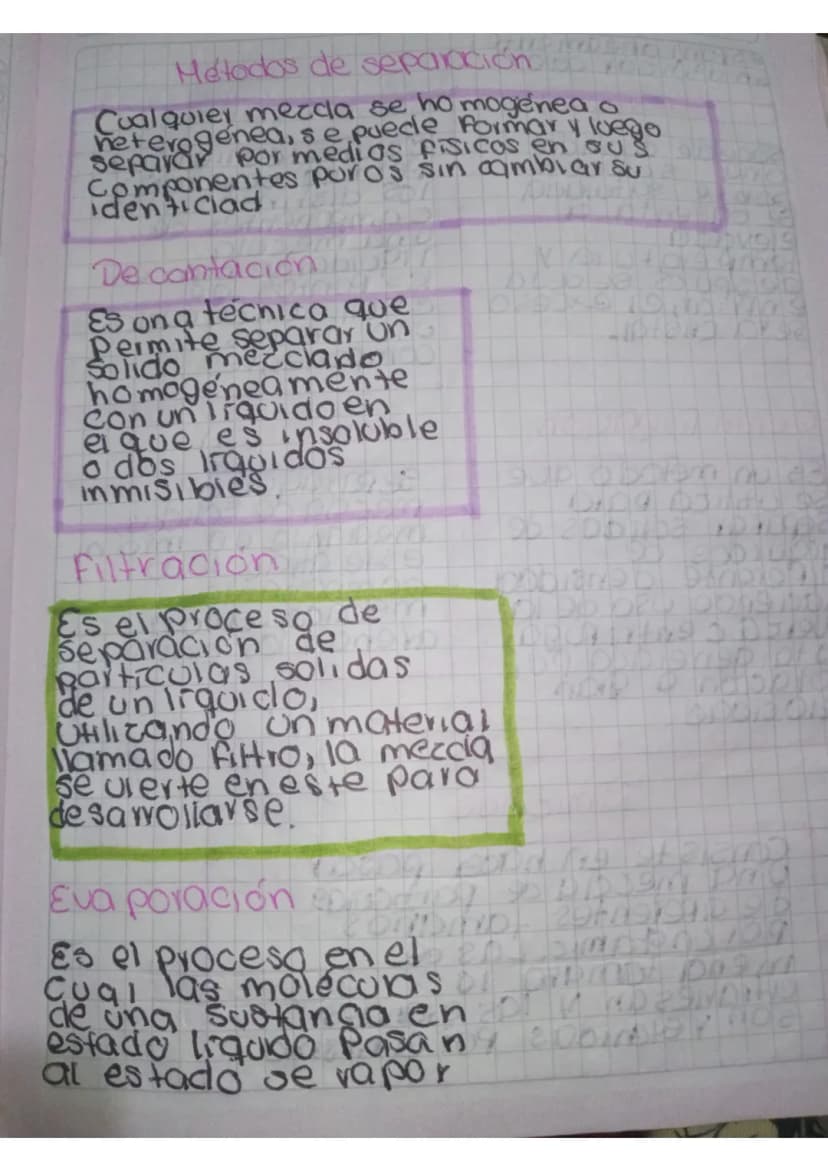 Métodos de separación
Cualquier mezcla se homogénea o
heterogénea, se puede formar y luego
separar por medios físicos en sus
componentes puros sin cambiar su
identidad
Decantación
Es una técnica que
permite separar un
solido mezclado
homogéneamente
con un líquido en
el que es insoluble
o dos líquidos
inmisibles.
Filtración
Es el proceso de
separación de
partículas solidas
de un líquido,
utilizando un material
llamado filtro, la mezcla
se vierte en este para
desarrollarse.
Evaporación
Es el proceso en el
cual las moléculas
de una sustancia en
estado líquido pasan
al estado se vapor